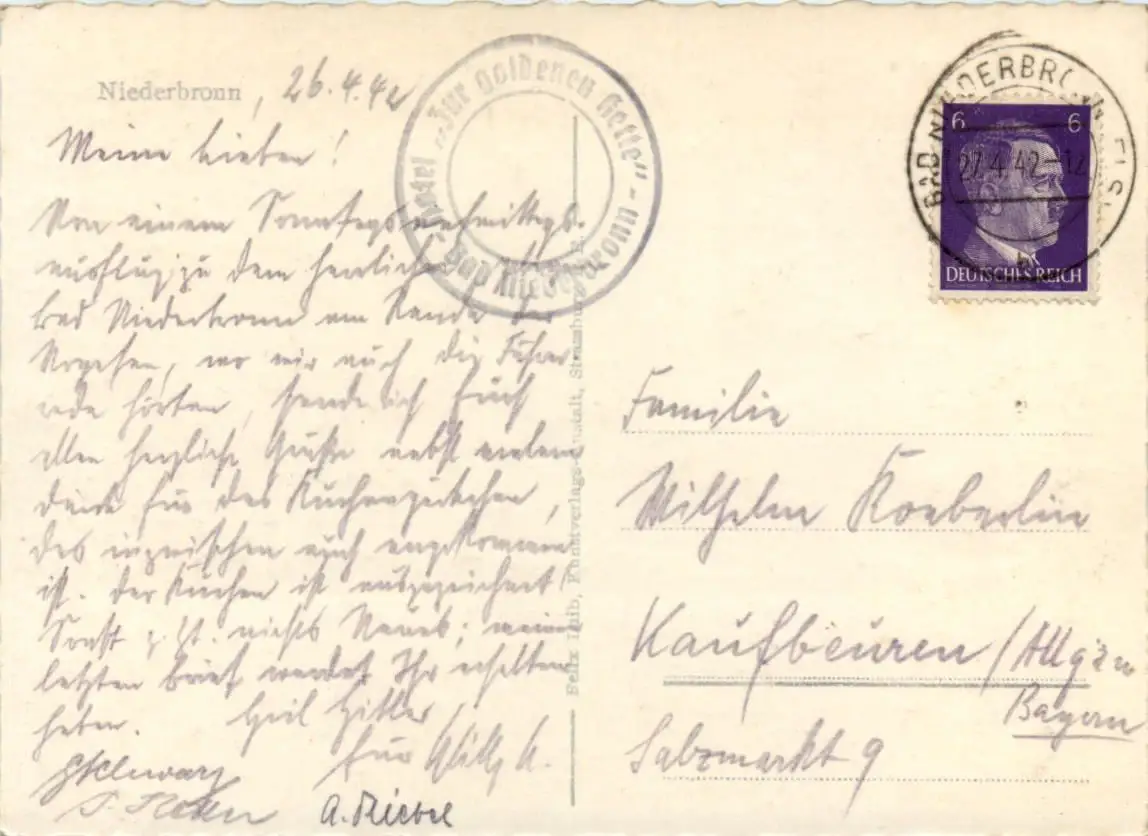 Niederbronn, 26.4.42
Meine Lieben!
Von einem Sonntagnachmittags-
ausflug zu dem herrlichen
Bad Niederbronn am Rande der
Vogesen, wo wir auch die Führer
rede hörten, sende ich Euch
allen herzliche Grüße nebst vielem
Dank für das Kuchenpäckchen,
das inzwischen auch angekommen
ist. Der Kuchen ist ausgezeichnet!
Sonst z. Zt. nichts Neues; meinen
letzten Brief werdet Ihr erhalten
haben. Heil Hitler
Euer Willy
A. Riebel
Hotel „Zur Goldenen Kette“ - Bad Niederbronn -
Felix Luib, Kunstverlags-Anstalt, Strassburg
BAD NIEDERBRONN ELS
27.4.42-12
b
6 6
DEUTSCHES REICH
Familie
Wilhelm Koeberlin
Kaufbeuren/Allgäu
Bayern
Salzmarkt 9